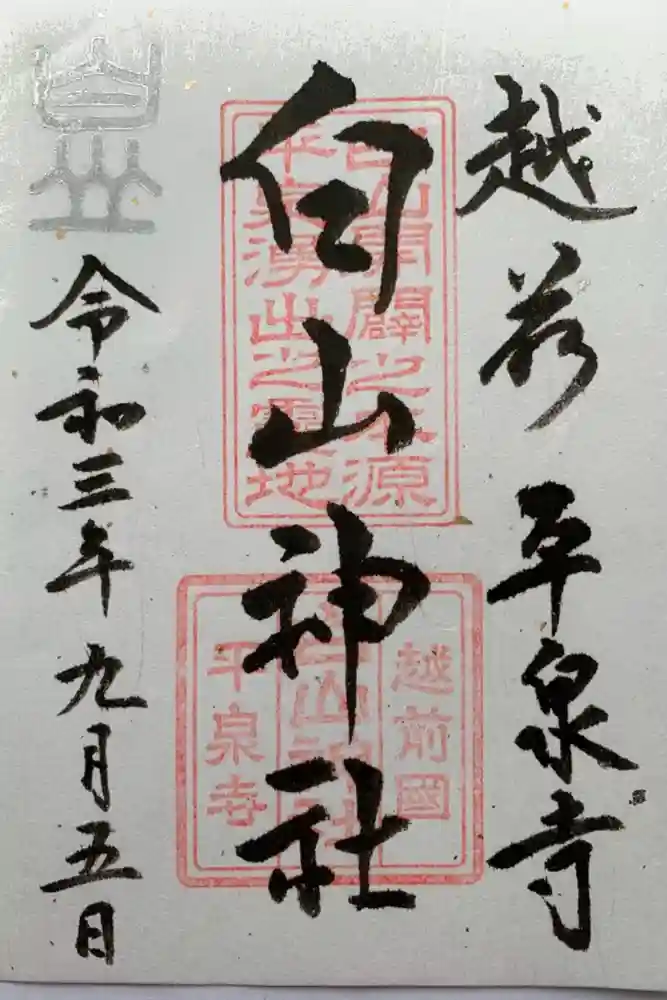 越前 平泉寺
白山神社
白山開闢之本源
平泉湧出之靈地
越前國
白山神社
平泉寺
令和三年九月五日